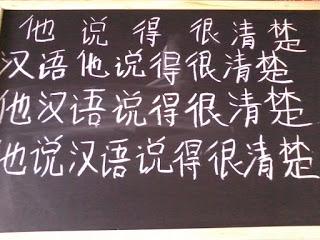 他说得很清楚
汉语他说得很清楚
他汉语说得很清楚
他说汉语说得很清楚